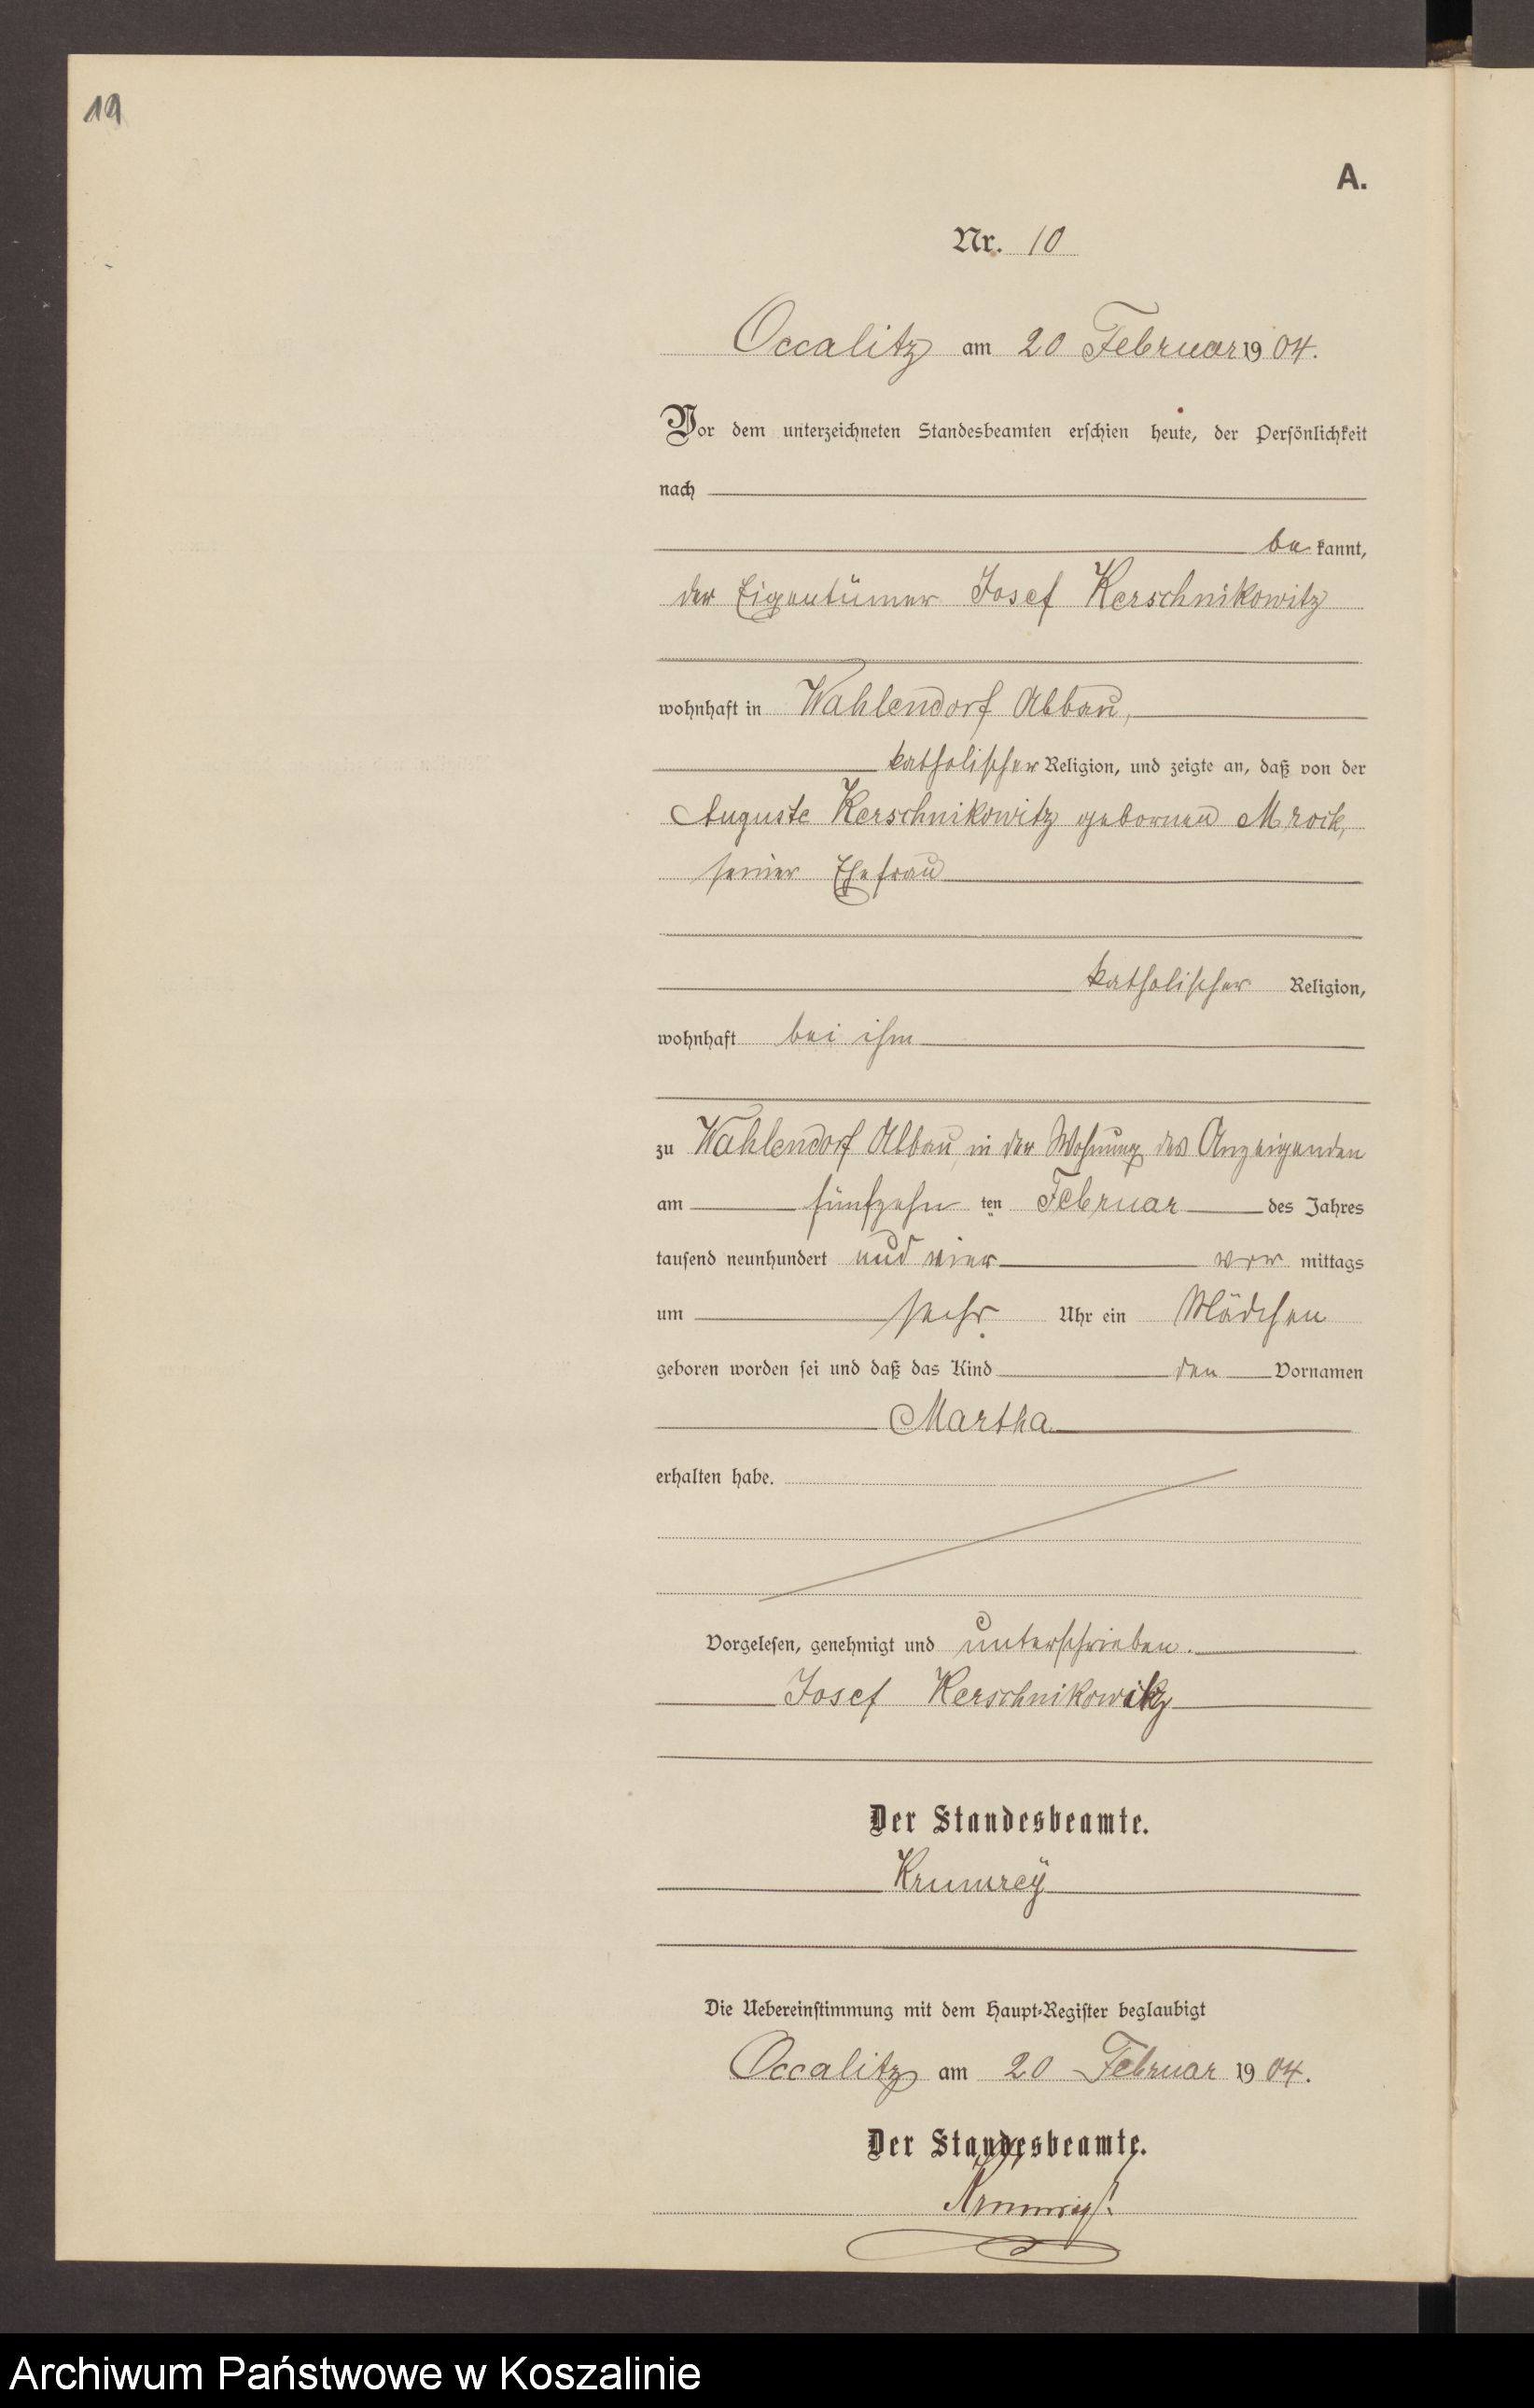 19
A.
Nr. 10
Occalitz am 20 Februar 1904.
Vor dem unterzeichneten Standesbeamten erschien heute, der Persönlichkeit
nach
be kannt,
der Eigentümer Josef Kerschnikowitz
wohnhaft in Wahlendorf Abbau,
katholischer Religion, und zeigte an, daß von der
Auguste Kerschnikowitz gebornen Mrock,
seiner Ehefrau
katholischer Religion,
wohnhaft bei ihm
zu Wahlendorf Abbau, in der Wohnung des Anzeigenden
am fünfzehn ten Februar des Jahres
tausend neunhundert und vier vor mittags
um sechs Uhr ein Mädchen
geboren worden sei und daß das Kind den Vornamen
Martha
erhalten habe.
Vorgelesen, genehmigt und unterschrieben.
Josef Kerschnikowitz
Der Standesbeamte.
Krumrey
Die Uebereinstimmung mit dem Haupt-Register beglaubigt
Occalitz am 20 Februar 1904.
Der Standesbeamte.
Krumrey
Archiwum Państwowe w Koszalinie